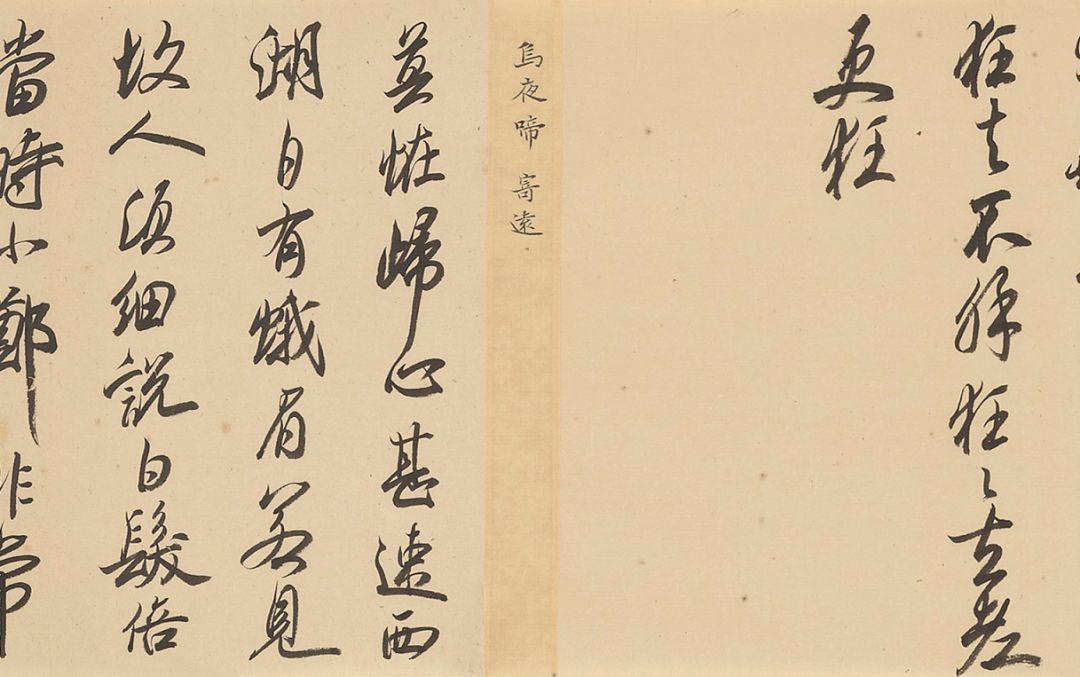 狂夫不解狂〻夫老
更狂
烏夜啼 寄遠
莫怪歸心甚速西
湖自有蛾眉若見
故人須細說白髮倍
當時小鄭非常